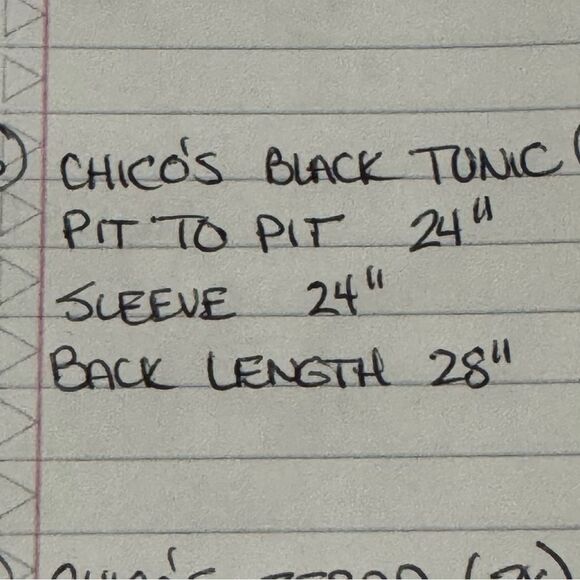 CHICO'S BLACK TUNIC
PIT TO PIT 24"
SLEEVE 24"
BACK LENGTH 28"